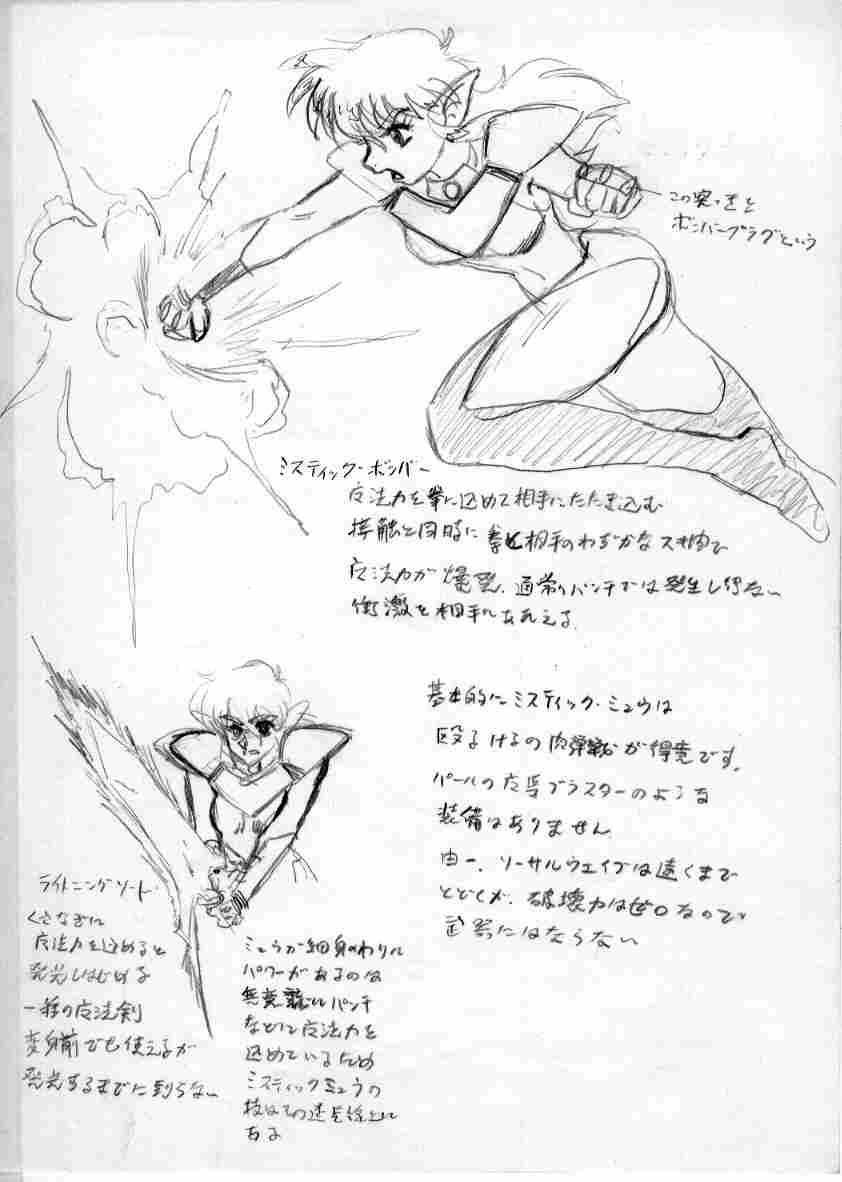 この突きを
ボンバープラグという
ミスティック・ボンバー
魔法力を拳に込めて相手にたたき込む
接触と同時に 拳と相手のわずかなスキ間で
魔法力が 爆発、通常のパンチでは発生し得ない
衝激を相手にあたえる。
基本的にミスティック・ミュウは
殴るけるの肉弾戦が得意です。
パールの魔導ブラスターのような
装備はありません
由一、ソーサルウェイブは遠くまで
とどくが、破壊力はゼロなので
武器にはならない
ライトニングソード
くさなぎに
魔法力を込めると
発光しはじめる
一種の魔法剣
変身前でも使えるが
発光するまでに到らない
ミュウが細身のわりに
パワーがあるのは
無意識にパンチ
などに魔法力を
込めているため
ミスティックミュウの
技はその延長線上に
ある